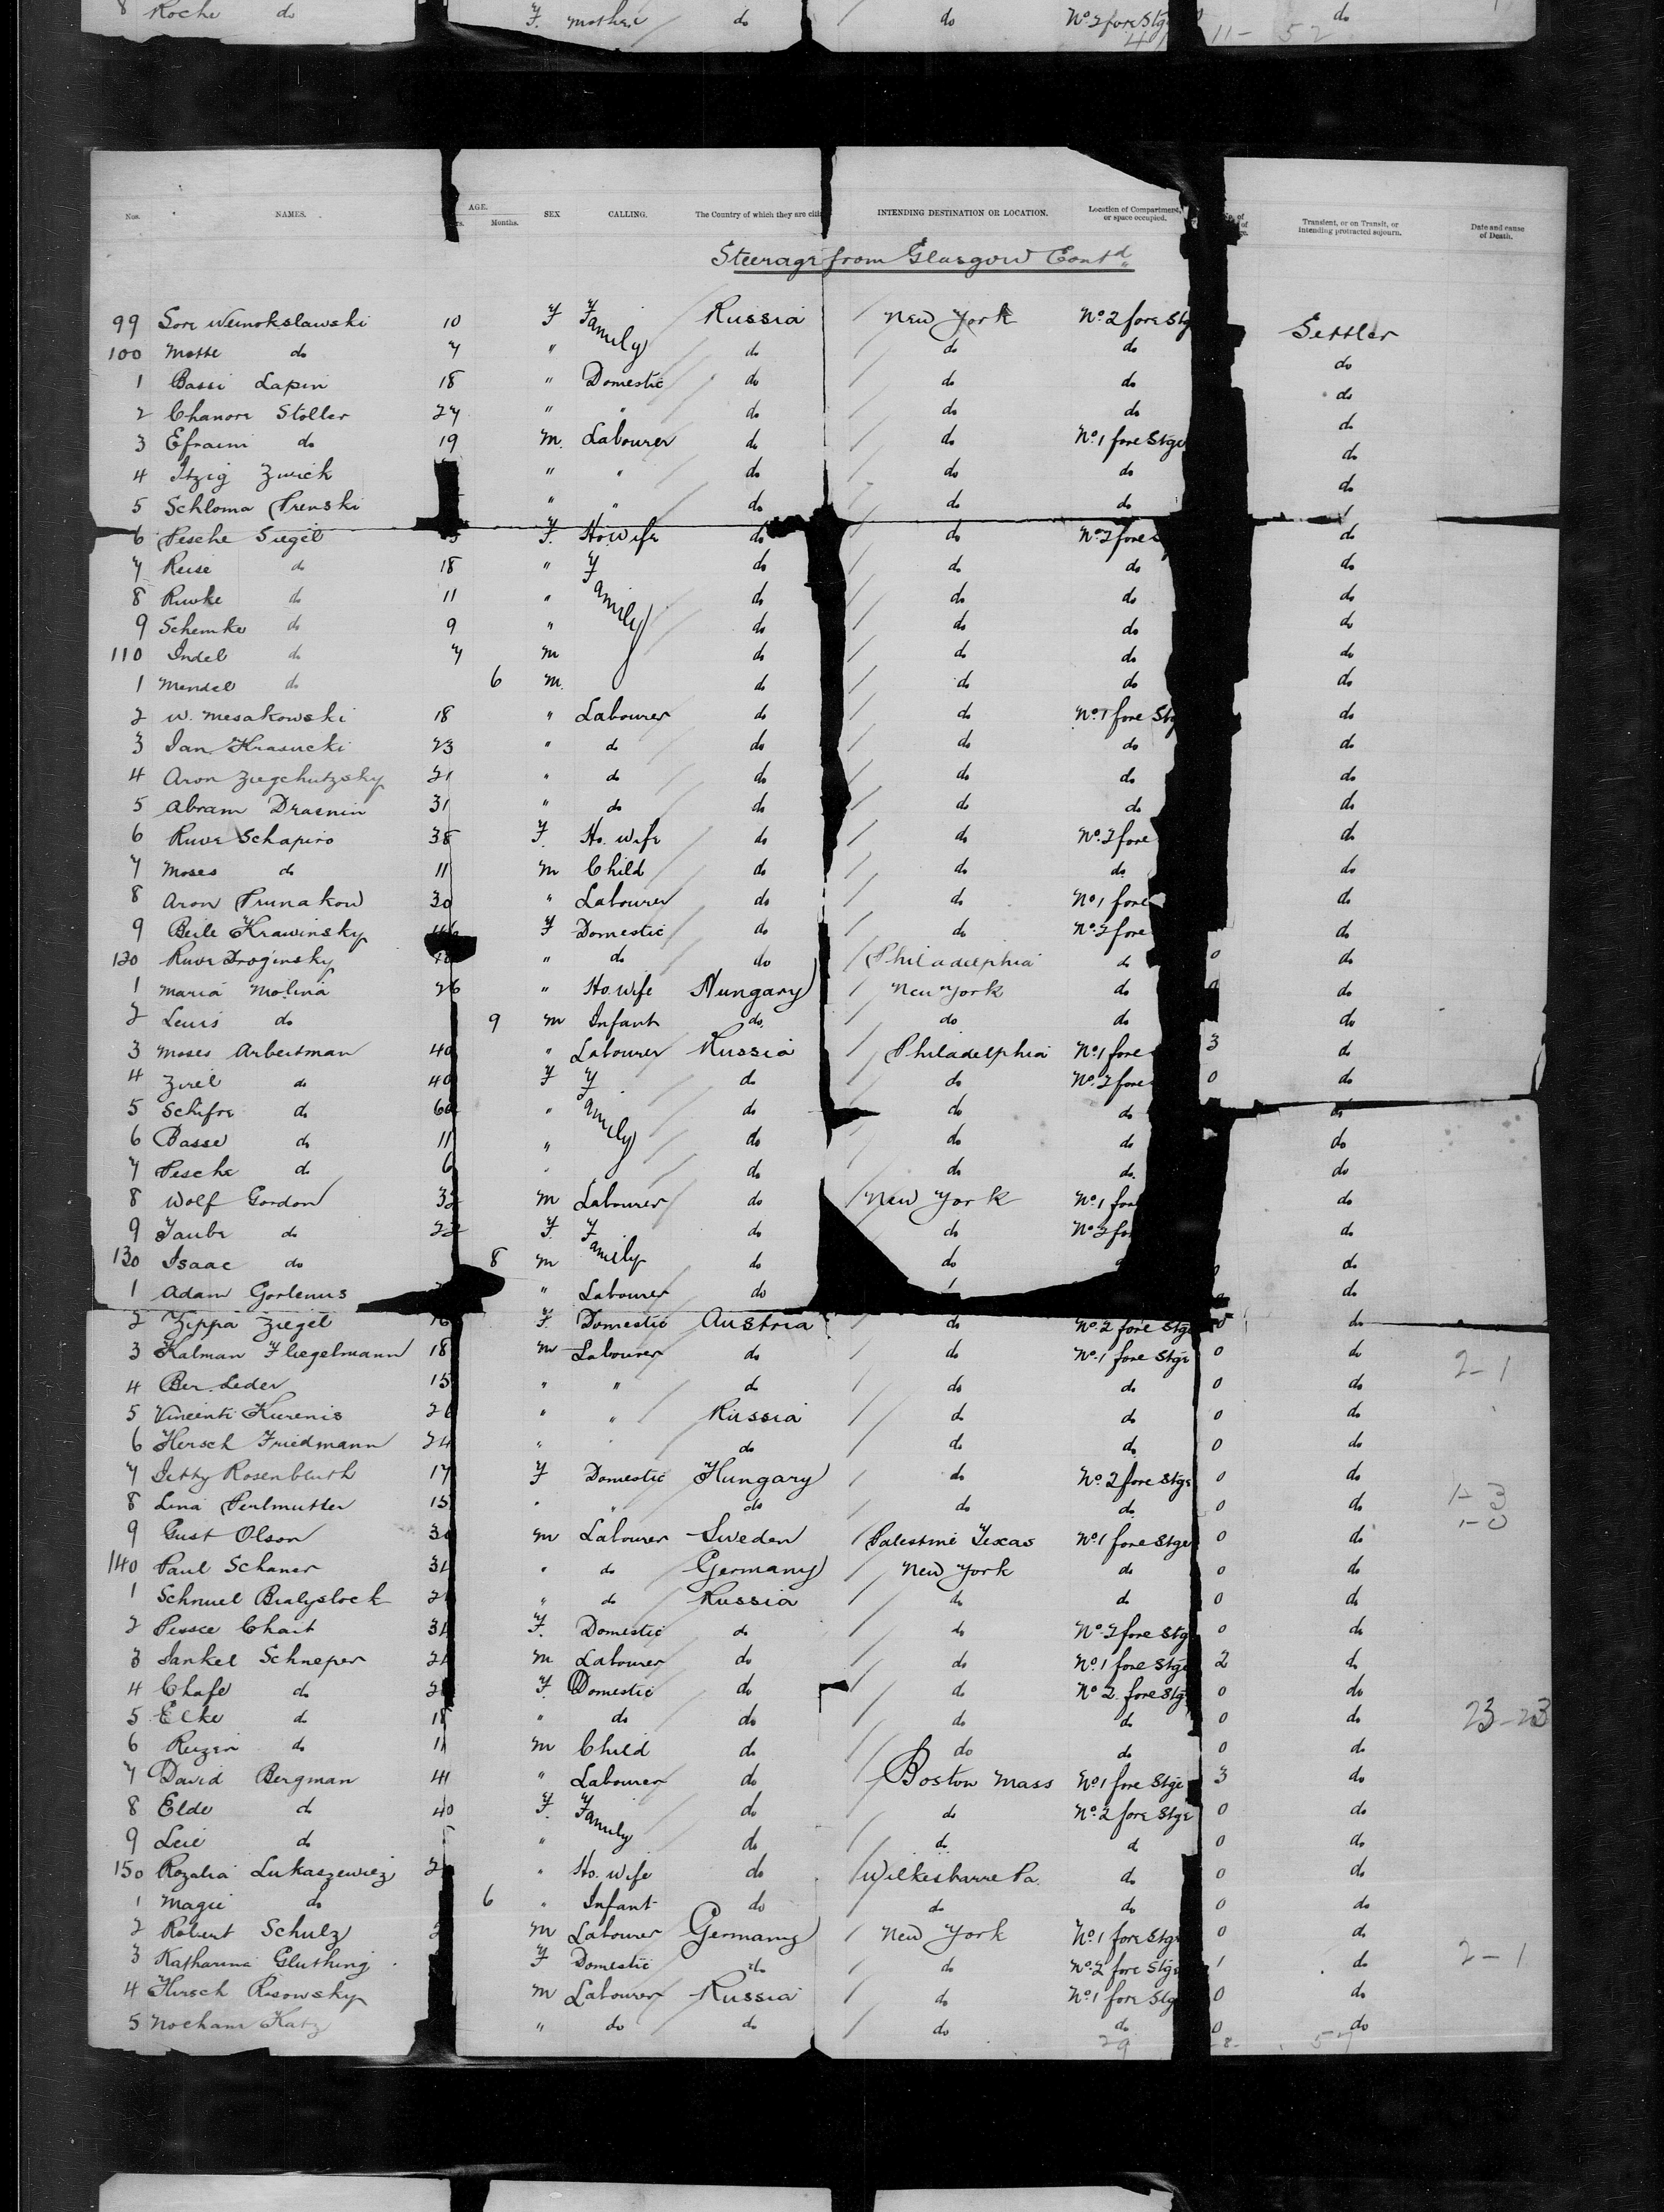 8 Roche do F. Mother do / do No 2 fore Stg do
11- 52
Nos. NAMES. AGE. Months. SEX CALLING. The Country of which they are INTENDING DESTINATION OR LOCATION. Location of Compartment, or space occupied. Transient, or on Transit, or intending protracted sojourn. Date and cause of Death.
Steerage from Glasgow Contd
99 Sore 10 F Family Russia / New York No 2 fore Stg Settler
100 Motte do 7 " do / do do do
1 Bassi Lapin 18 " Domestic do / do do do
2 Chanore Stoller 27 " " do / do do do
3 Efraim do 19 M. Labourer do / do No 1 fore Stge do
4 Itzig Zwick " " do / do do do
5 Schloma Prenski " " do / do do
6 Pesche Siegel F. Ho. Wife do / do No 2 fore do
7 Reise do 18 " Family do / do do do
8 Riwke do 11 " do / do do do
9 Schemke do 9 " do / do do do
110 Indel do 7 M do / do do do
1 Mendel do 6 M. do / do do do
2 W. Mesakowski 18 " Labourer do / do No 1 fore Stg do
3 Jan Krasucki 23 " do do / do do do
4 Aron Ziegchutzsky 21 " do do / do do do
5 Abram Drasnin 31 " do do / do do do
6 Ruve Schapiro 38 F. Ho. Wife do / do No 2 fore do
7 Moses do 11 M Child do / do do do
8 Aron Prunakow 30 " Labourer do / do No 1 fore do
9 Beile Krawinsky F Domestic do / do No 2 fore do
120 Ruve Droginsky " do do / Philadelphia do 0 do
1 Maria Molina 26 " Ho. Wife Hungary / New York do 0 do
2 Leuis do 9 M Infant do / do do do
3 Moses Arbeitman 40 " Labourer Russia / Philadelphia No 1 fore 3 do
4 Zirel do 40 F Family do / do No 2 fore 0 do
5 Schifre do 60 " do / do do do
6 Basse do 11 " do / do do do
7 Pesche do 6 " do / do do do
8 Wolf Gordon 32 M Labourer do / New York No 1 fore do
9 Taube do 22 F. Family do / do No 2 fo do
130 Isaac do 8 M do / do do
1 Adam Gorlenus " Labourer do / do
2 Zippa Ziegel 16 F Domestic Austria / do No 2 fore Stg 0 do
3 Kalman Fliegelmann 18 M Labourer do / do No 1 fore Stge 0 do 2-1
4 Ber Leder 15 " " do / do do 0 do
5 Vincenti Kurenis 26 " " Russia / do do 0 do
6 Hersch Friedmann 24 " " do / do do 0 do
7 Jetty Rosenbluth 17 F Domestic Hungary / do No 2 fore Stge 0 do
8 Lina Perlmutter 15 " " do / do do 0 do 1-3
9 Gust Olson 30 M Labourer Sweden / Palestine Texas No 1 fore Stge 0 do 1-0
140 Paul Schaner " do Germany / New York do 0 do
1 Schmuel Bialystock " do Russia / do do 0 do
2 Pessie Chait F. Domestic do / do No 2 fore Stg 0 do
3 Jankel Schneper M Labourer do / do No 1 fore Stge 2 do
4 Chafe do F. Domestic do / do No 2 fore Stg 0 do
5 Elke do 18 " do do / do do 0 do 23-23
6 Reizen do 11 M Child do / do do 0 do
7 David Bergman 41 " Labourer do / Boston Mass No 1 fore Stge 3 do
8 Elde do 40 F. Family do / do No 2 fore Stge 0 do
9 Leie do " do / do do 0 do
150 Rozalia Lukaszewiez " Ho. Wife do / Wilkesbarre Pa. do 0 do
1 Magie do 6 " Infant do / do do 0 do
2 Robert Schulz M Labourer Germany / New York No 1 fore Stge 0 do
3 Katharina Gluthing F Domestic do / do No 2 fore Stge 1 do 2-1
4 Hirsch Risowsky M Labourer Russia / do No 1 fore Stg 0 do
5 Nocham Katz " do do / do do 0 do
29 -8- 57